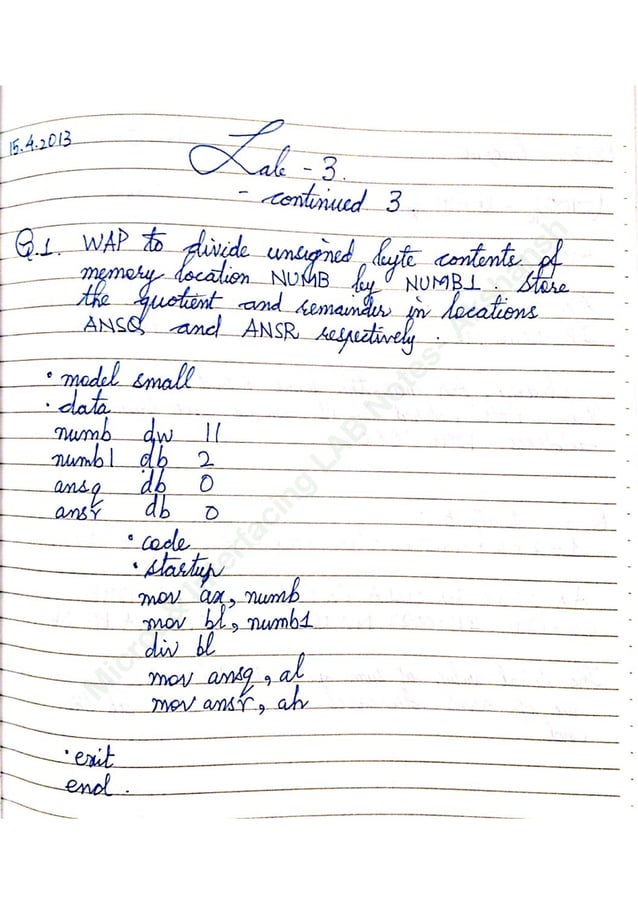 15.4.2013
Lab - 3.
- continued 3.
Q.1. WAP to divide unsigned byte contents of
memory location NUMB by NUMB1. Store
the quotient and remainder in locations
ANSQ and ANSR respectively.
.model small
.data
numb dw 11
numb1 db 2
ansq db 0
ansr db 0
.code
.startup
mov ax, numb
mov bl, numb1
div bl
mov ansq, al
mov ansr, ah
.exit
end.